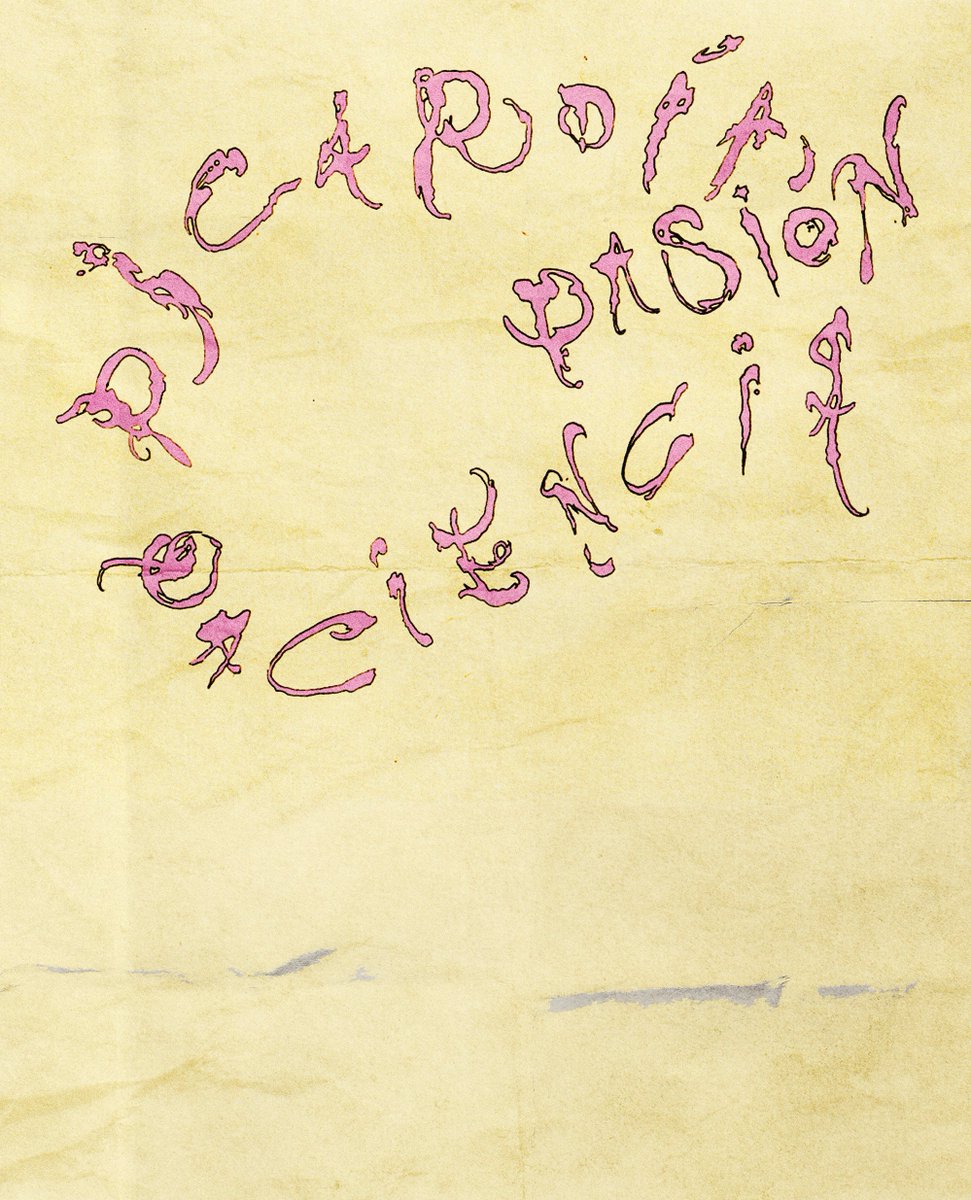 PiCARDÍA,
PASiÓN
PACiENCiA